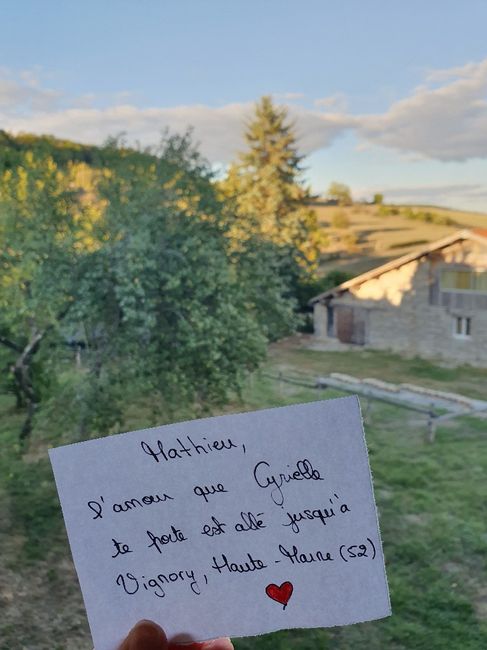 Mathieu,
l'amour que Cyrielle
te porte est allé jusqu'à
Vignory, Haute-Marne (52)